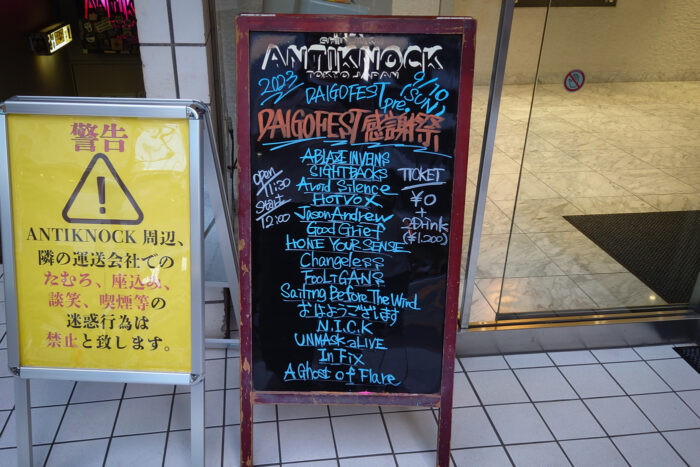 警告
ANTIKNOCK 周辺、
隣の運送会社での
たむろ、座込み、
談笑、喫煙等の
迷惑行為は
禁止と致します。
ANTIKNOCK
TOKYO JAPAN
2023 9/10
(SUN)
DAIGOFEST pre.
DAIGOFEST感謝祭
open
11:30
START
12:00
ABLAZE IN VEINS
SIGHTBACKS
Avoid Silence
HOTVOX
JasonAndrew
Good Grief
HONE YOUR SENSE
Changeless
FOOLiGANS
Sailing Before The Wind
おはようございます
N.I.C.K
UNMASK aLIVE
InFix
A Ghost of Flare
TICKET
¥0
+
2Drink
(¥1,200)